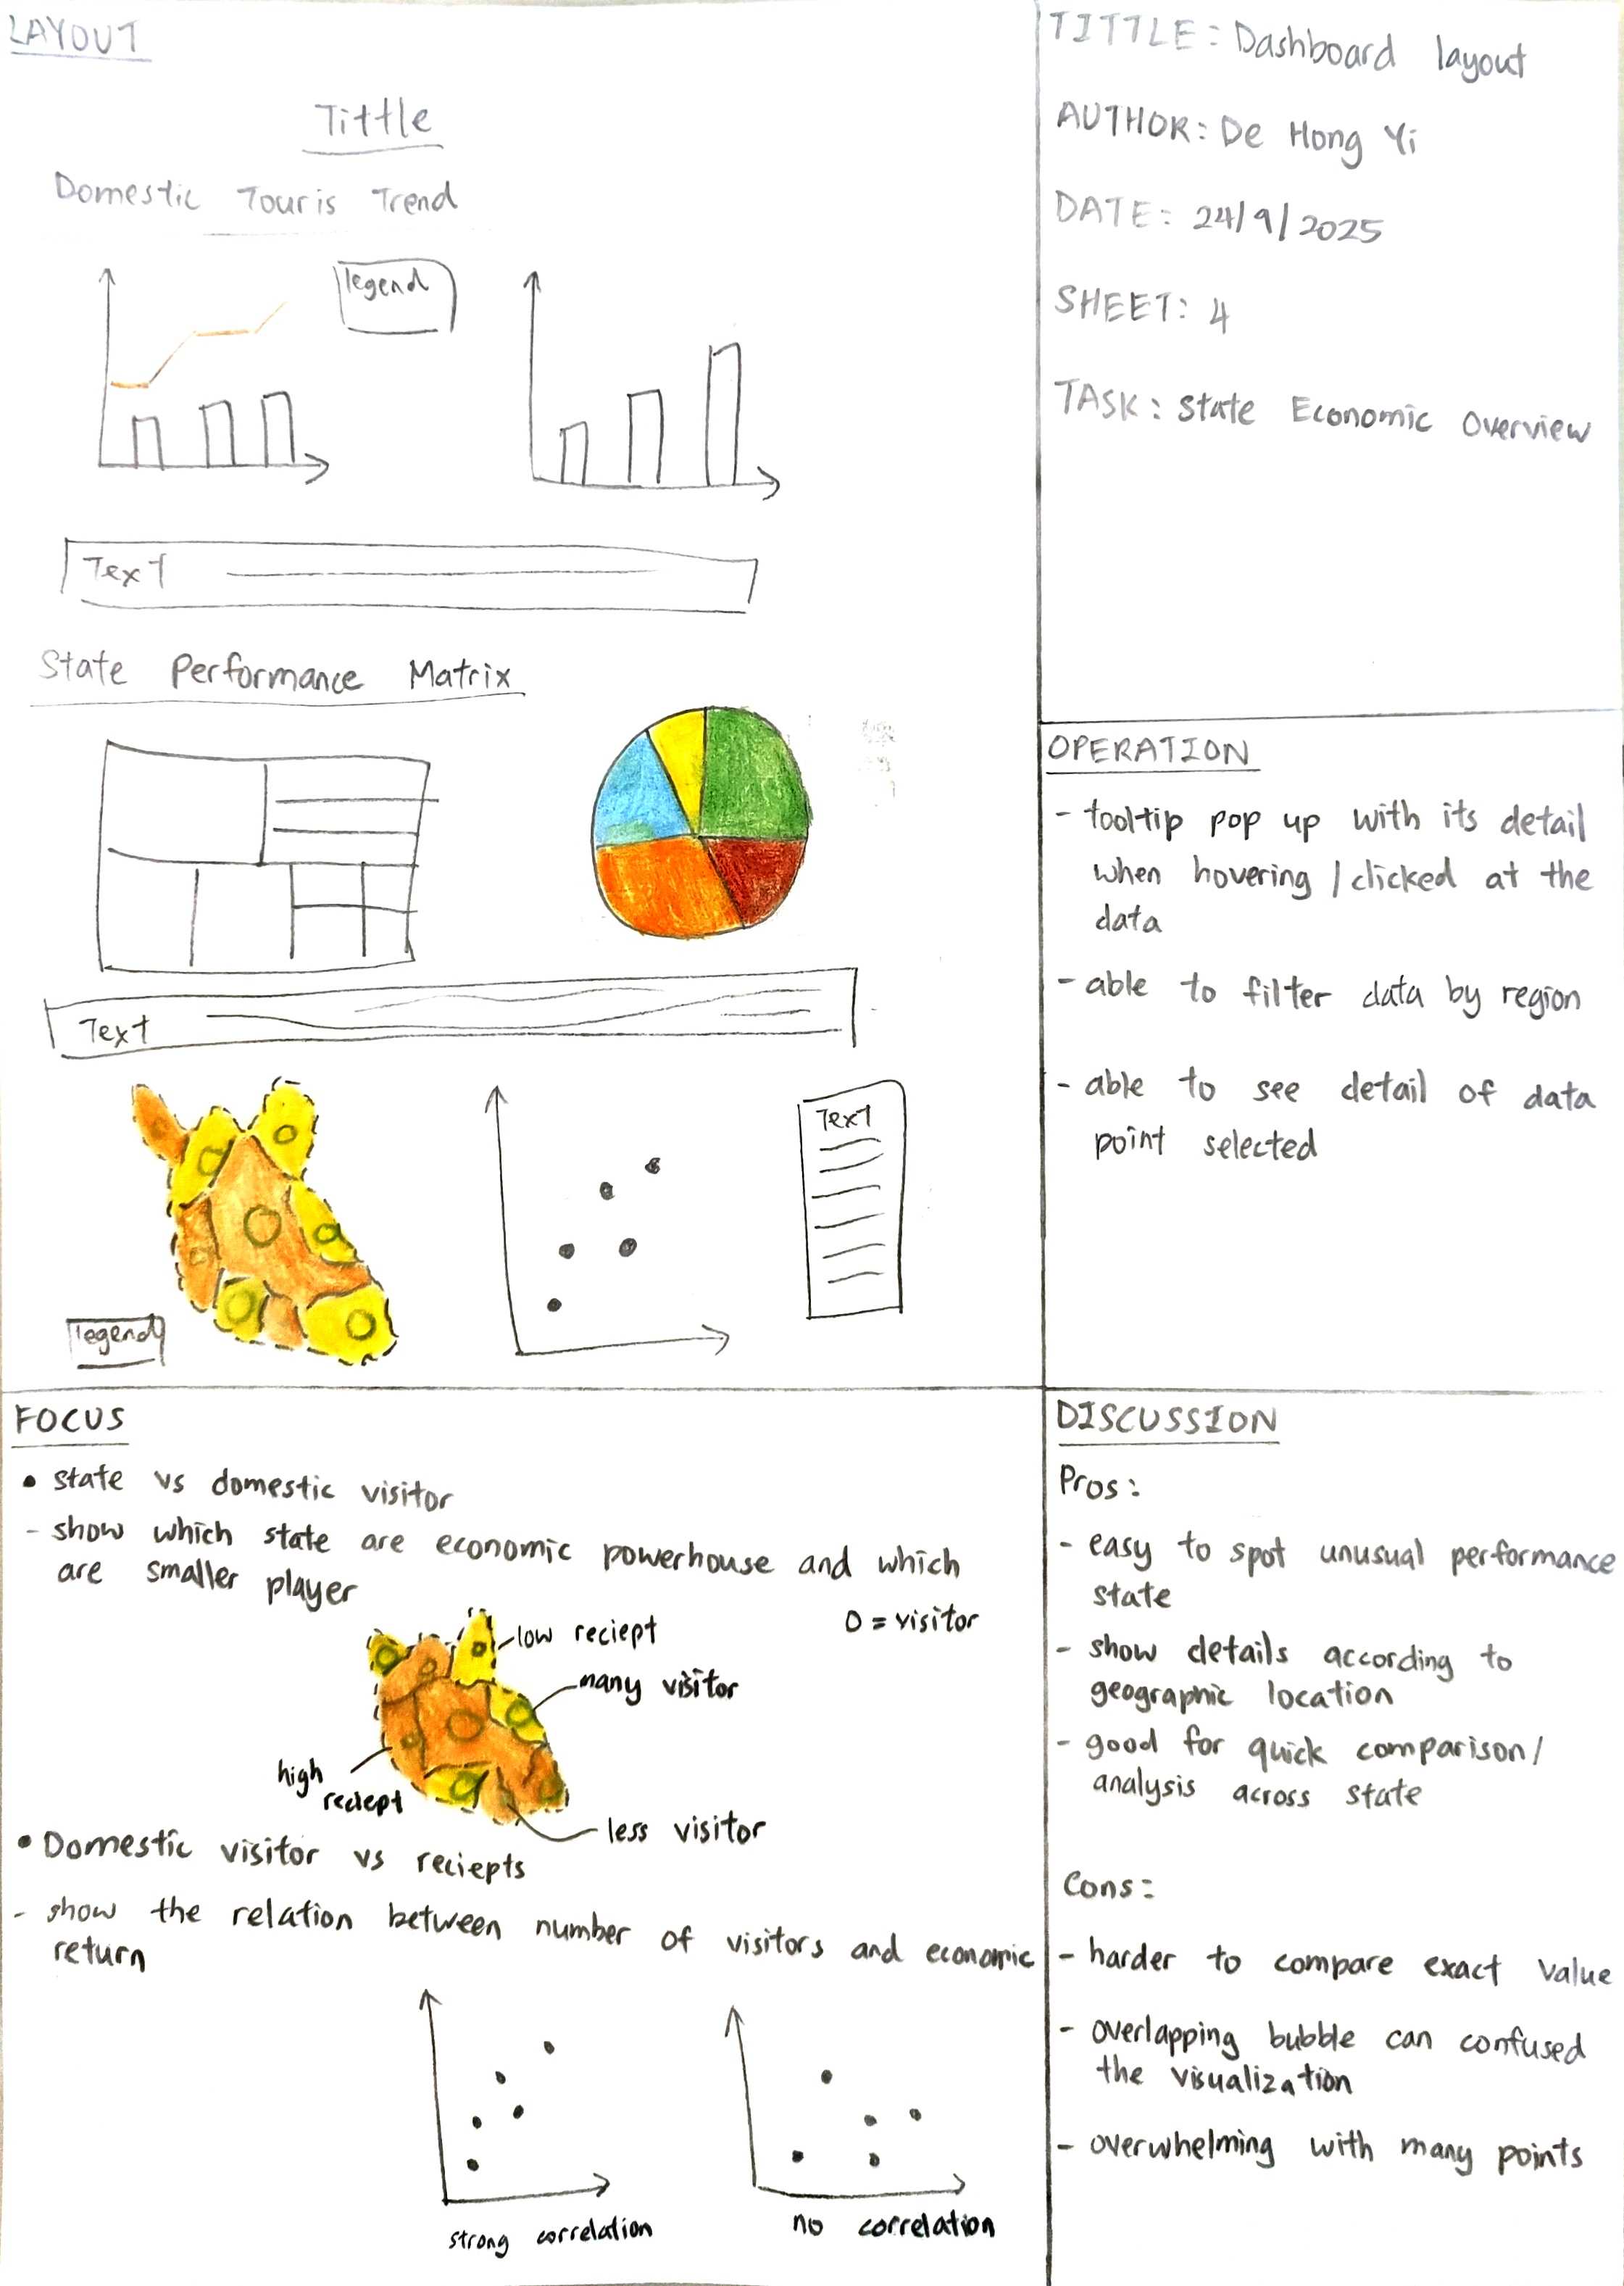 LAYOUT
Tittle
Domestic Touris Trend
legend
Text
State Performance Matrix
Text
Text
legend
TITTLE: Dashboard layout
AUTHOR: De Hong Yi
DATE: 24/9/2025
SHEET: 4
TASK: State Economic Overview
OPERATION
- tooltip pop up with its detail
when hovering / clicked at the
data
- able to filter data by region
- able to see detail of data
point selected
FOCUS
• state vs domestic visitor
- show which state are economic powerhouse and which
are smaller player
O = visitor
low reciept
many visitor
high
reciept
less visitor
• Domestic visitor vs reciepts
- show the relation between number of visitors and economic
return
strong correlation
no correlation
DISCUSSION
Pros:
- easy to spot unusual performance
state
- show details according to
geographic location
- good for quick comparison/
analysis across state
Cons:
- harder to compare exact value
- overlapping bubble can confused
the visualization
- overwhelming with many points